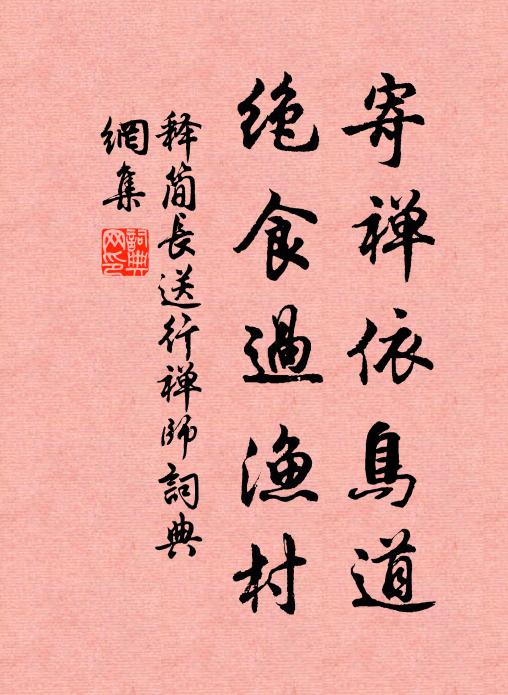 寄禅依鳥道
绝食過渔村
释简長送行禅师詞典
網集
詞典
网印